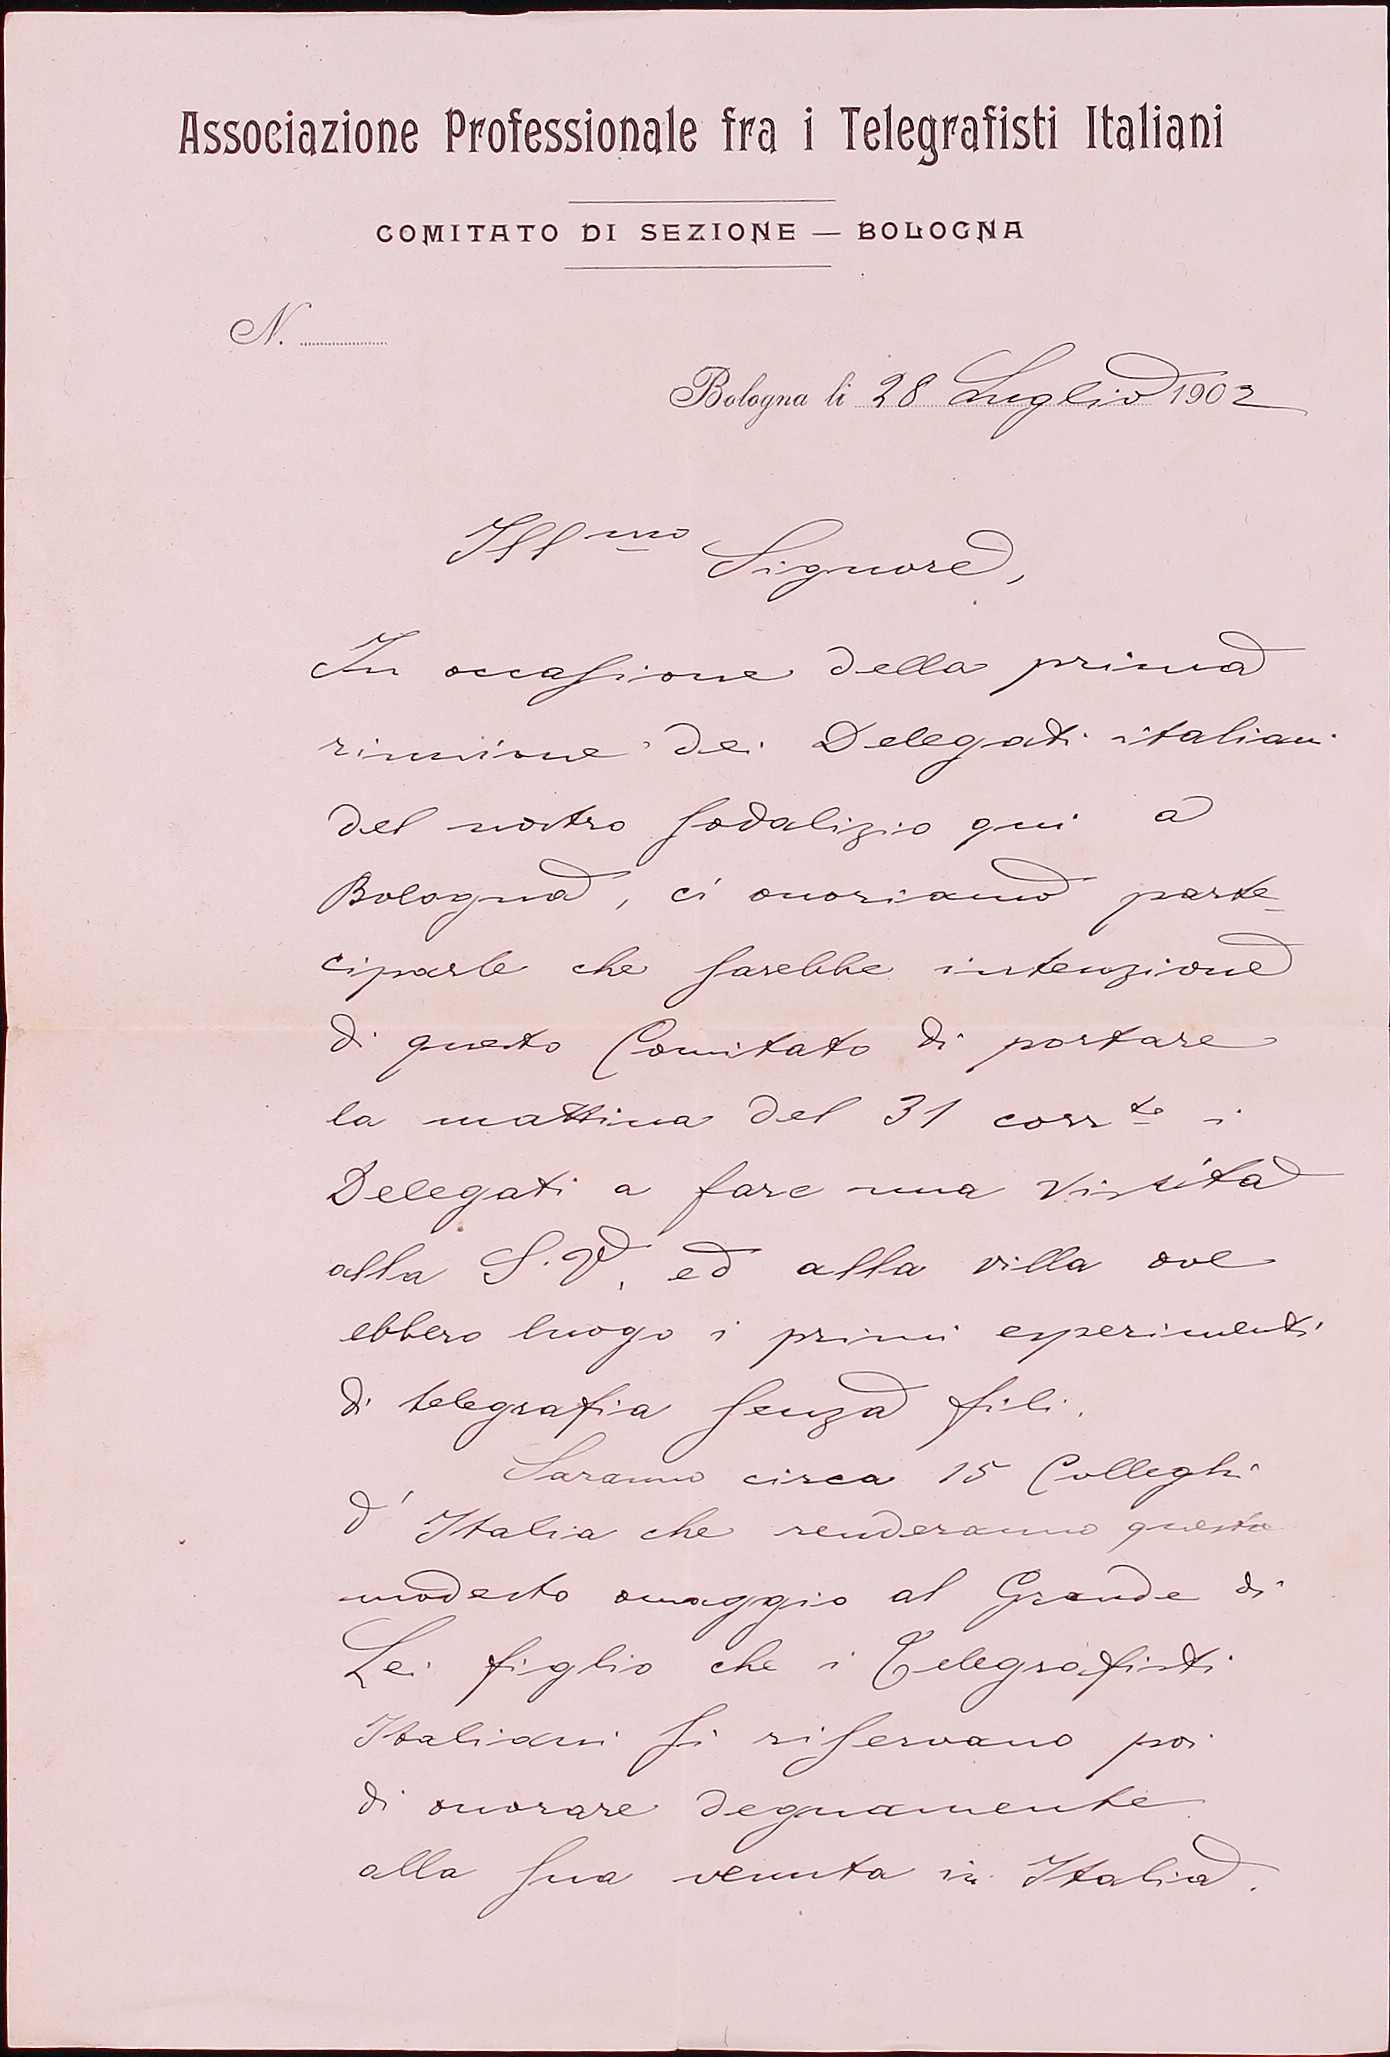 Associazione Professionale fra i Telegrafisti Italiani
COMITATO DI SEZIONE — BOLOGNA
N. ............
Bologna li 28 Luglio 1902
Ill.mo Signore,
In occasione della prima
riunione dei Delegati italiani
del nostro sodalizio qui a
Bologna, ci onoriamo parte-
ciparle che sarebbe intenzione
di questo Comitato di portare
la mattina del 31 corr.te i
Delegati a fare una visita
alla S.V. ed alla villa ove
ebbero luogo i primi esperimenti
di telegrafia senza fili.
Saranno circa 15 Colleghi
d'Italia che renderanno questo
modesto omaggio al Grande di
Lei figlio che i Telegrafisti
Italiani si riservano poi
di onorare degnamente
alla sua venuta in Italia.